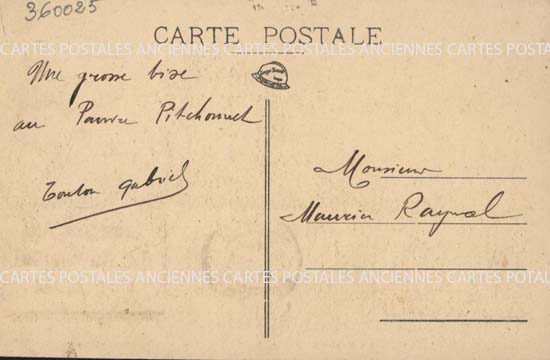 360025
CARTE POSTALE
CARTES POSTALES ANCIENNES CARTES POSTALES ANCIENNES CARTES POSTAL
Une grosse bise
au Pauvre Pitchounet
Tonton Gabriel
Monsieur
Maurice Raynal
CARTES POSTALES ANCIENNES CARTES POSTALES ANCIENNES CARTES POSTAL